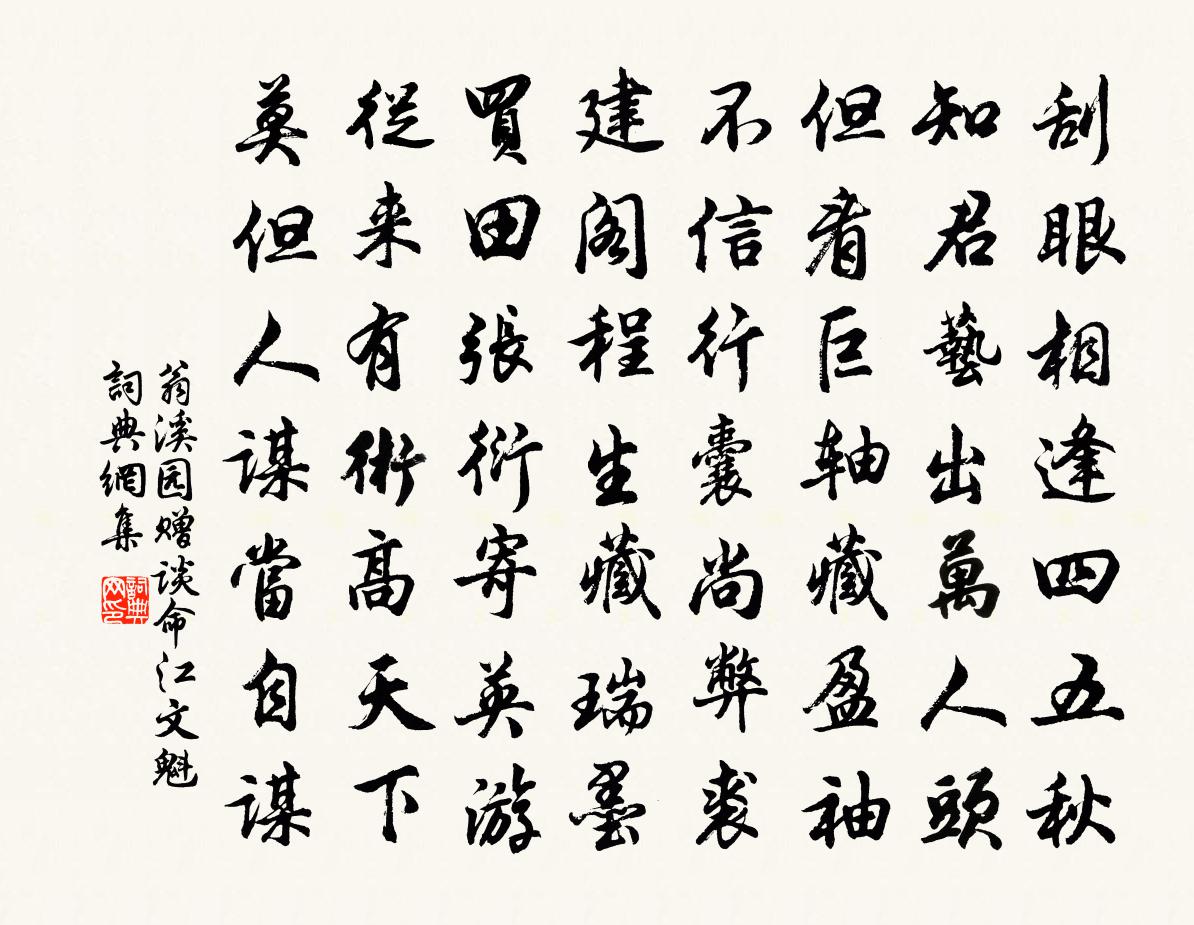 刮眼相逢四五秋
知君藝出萬人頭
但看巨轴藏盈袖
不信行囊尚弊裘
建閣程生藏瑞墨
買田張衍寄英游
從来有術高天下
莫但人謀當自謀
翁溪园赠谈命江文魁
詞典網集
詞典网印